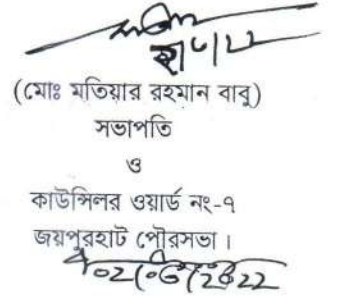 (মোঃ মতিয়ার রহমান বাবু)
সভাপতি
ও
কাউন্সিলর ওয়ার্ড নং-৭
জয়পুরহাট পৌরসভা।